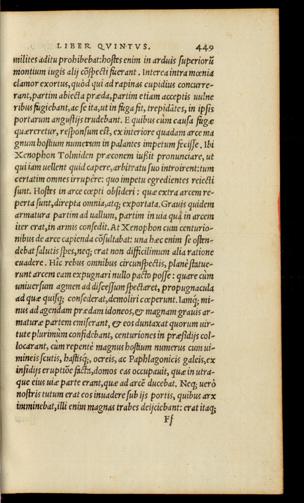 LIBER QVINTVS. 449
milites aditu prohibebat: hostes enim in arduis superiorũ
montium iugis alij cõspecti fuerant. Interea intra mœnia
clamor exortus, quòd qui ad rapinas cupidius concurre-
rant, partim abiecta præda, partim etiam acceptis uulne
ribus fugiebant, ac se ita, ut in fuga fit, trepidãtes, in ipsis
portarum angustijs trudebant. E quibus cùm causa fugæ
quæreretur, responsum est, ex interiore quadam arce ma
gnum hostium numerum in palantes impetum fecisse. Ibi
Xenophon Tolmiden præconem iussit pronunciare, ut
qui iam uellent quid capere, arbitratu suo introirent: tum
certatim omnes irrupère: quo impetu egredientes reiecti
sunt. Hostes in arce cœpti obsideri: quæ extra arcem re-
perta sunt, direpta omnia, atq; exportata. Grauis quidem
armatura partim ad uallum, partim in uia quà in arcem
iter erat, in armis consedit. At Xenophon cum centurio-
nibus de arce capienda cõsultabat: una hæc enim se osten-
debat salutis spes, neq; erat non difficilimum alia ratione
euadere. Hic rebus omnibus circunspectis, planè statue-
runt arcem eam expugnari nullo pacto posse: quare cùm
uniuersum agmen ad discessum spectaret, propugnacula
ad quæ quisq; consederat, demoliri cœperunt. Iamq; mi-
nus ad agendam prædam idoneos, & magnam grauis ar-
maturæ partem emiserant, & eos duntaxat quorum uir-
tute plurimùm confidebant, centuriones in præsidijs col-
locarant, cùm repentè magnus hostium numerus cum ui-
mineis scutis, hastisq;, ocreis, ac Paphlagonicis galeis, ex
insidijs eruptiõe facta, domos eas occupauit, quæ in utra-
que eius uiæ parte erant, quæ ad arcẽ ducebat. Neq; uerò
nostris tutum erat eos inuadere sub ijs portis, quibus arx
imminebat, illi enim magnas trabes deijciebant: erat itaq;
Ff